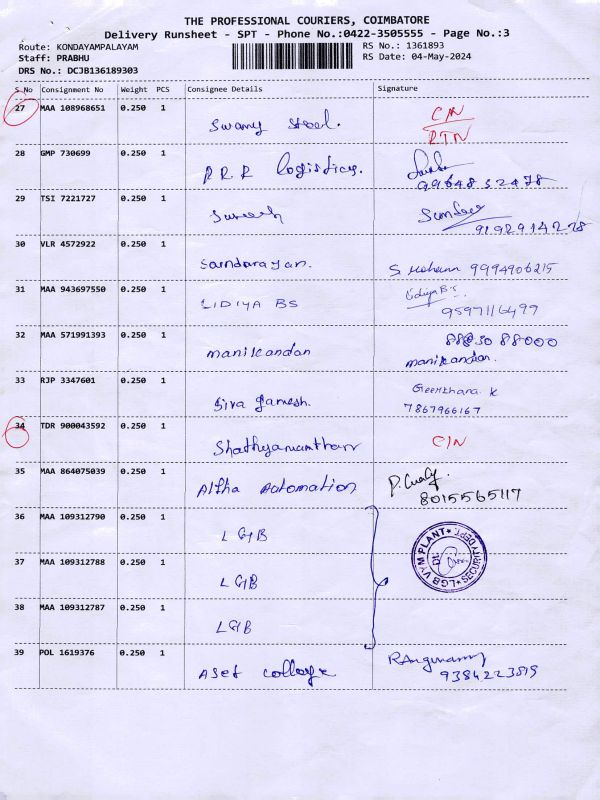 THE PROFESSIONAL COURIERS, COIMBATORE
Delivery Runsheet - SPT - Phone No.:0422-3505555 - Page No.:3
Route: KONDAYAMPALAYAM
RS No.: 1361893
Staff: PRABHU
RS Date: 04-May-2024
DRS No.: DCJB136189303
S.No Consignment No Weight PCS Consignee Details Signature
27 MAA 108968651 0.250 1 Swamy Steel. C/N
RTN
28 GMP 730699 0.250 1 R.R.R Logistics.
9964832478
29 TSI 7221727 0.250 1 Suresh
9192914278
30 VLR 4572922 0.250 1 Saundarayan. S Mohann 9994906215
31 MAA 943697550 0.250 1 LIDIYA BS Lidiya B.S.
9597116499
32 MAA 571991393 0.250 1 manikandan 88830 88000
manikandan.
33 RJP 3347601 0.250 1 Siva ganesh. Geerthana. K
7867966167
34 TDR 900043592 0.250 1 C/N
35 MAA 864075039 0.250 1 Altha Automation
8015565117
36 MAA 109312790 0.250 1 LGB
37 MAA 109312788 0.250 1 LGB
38 MAA 109312787 0.250 1 LGB
LGB VYM PLANT * SECURITY DEPT. *
39 POL 1619376 0.250 1 Aset College
9384223819